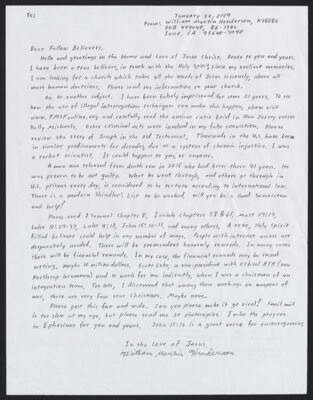 January 22, 2019
From: William Martin Henderson,
Ione, CA 95640-9048
Dear Fellow Believers,
Hello and greetings in the Name and Love of Jesus Christ. Peace to you and yours,
I have been a true believer, in touch with the Holy Spirit since my earliest memories.
I am looking for a church which takes all the words of Jesus seriously, above all
mere human doctrines. Please send me information on your church.
On to another subject, I have been falsely imprisoned for some 21 years. To see
how the use of illegal interrogation techniques can make this happen, please visit
and carefully read the amicus curie held in New Jersey versus
Kelly Michaels. Other criminal acts were involved in my false conviction. Please
review the story of Joseph in the Old Testament. Thousands in the U.S. have been
in similar predicaments for decades due to a system of chronic injustice. I was
a rocket scientist. It could happen to you, or anyone.
A man was released from death row in 2018 who had been there 41 years. He
was proven to be not guilty. What he went through, and others go through in
U.S. prisons every day, is considered to be torture according to international law.
There is a modern Shindler's List to be worked, will you be a Good Samaritan
and help?
Please read 1 Samuel Chapter 8, Isaiah Chapters 58 & 61, Matt 19:29,
Luke 10:29-37, Luke 4:18, John 15:10-17, and many others. A real, Holy Spirit
filled believer could help in any number of ways. People with internet access are
desperately needed. There will be tremendous heavenly rewards. In many cases
there will be financial rewards. In my case, the financial rewards may be record
setting, maybe 18 million dollars.
Northrop Grumman) used to work for me indirectly, when I was a chairman of an
integration team. Too late, I discovered that among those working on weapons of
war, there are very few true Christians. Maybe none.
Please post this far and wide. Can you please make it go viral? Snail mail
is too slow at my age, but please send me 20 photocopies. I echo the prayer
in Ephesians for you and yours. John 15:16 is a great verse for encouragement.
In the Love of Jesus,
William Martin Henderson